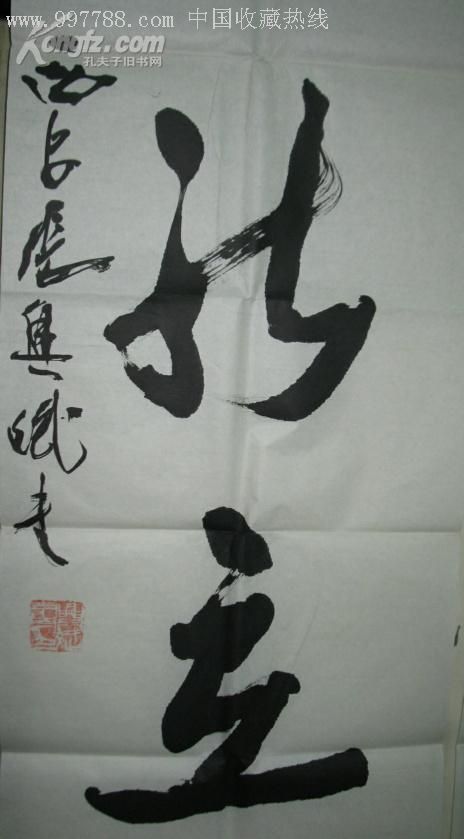 www.997788.com 中国收藏热线
Kongfz.com
孔夫子旧书网
立
西安張興書